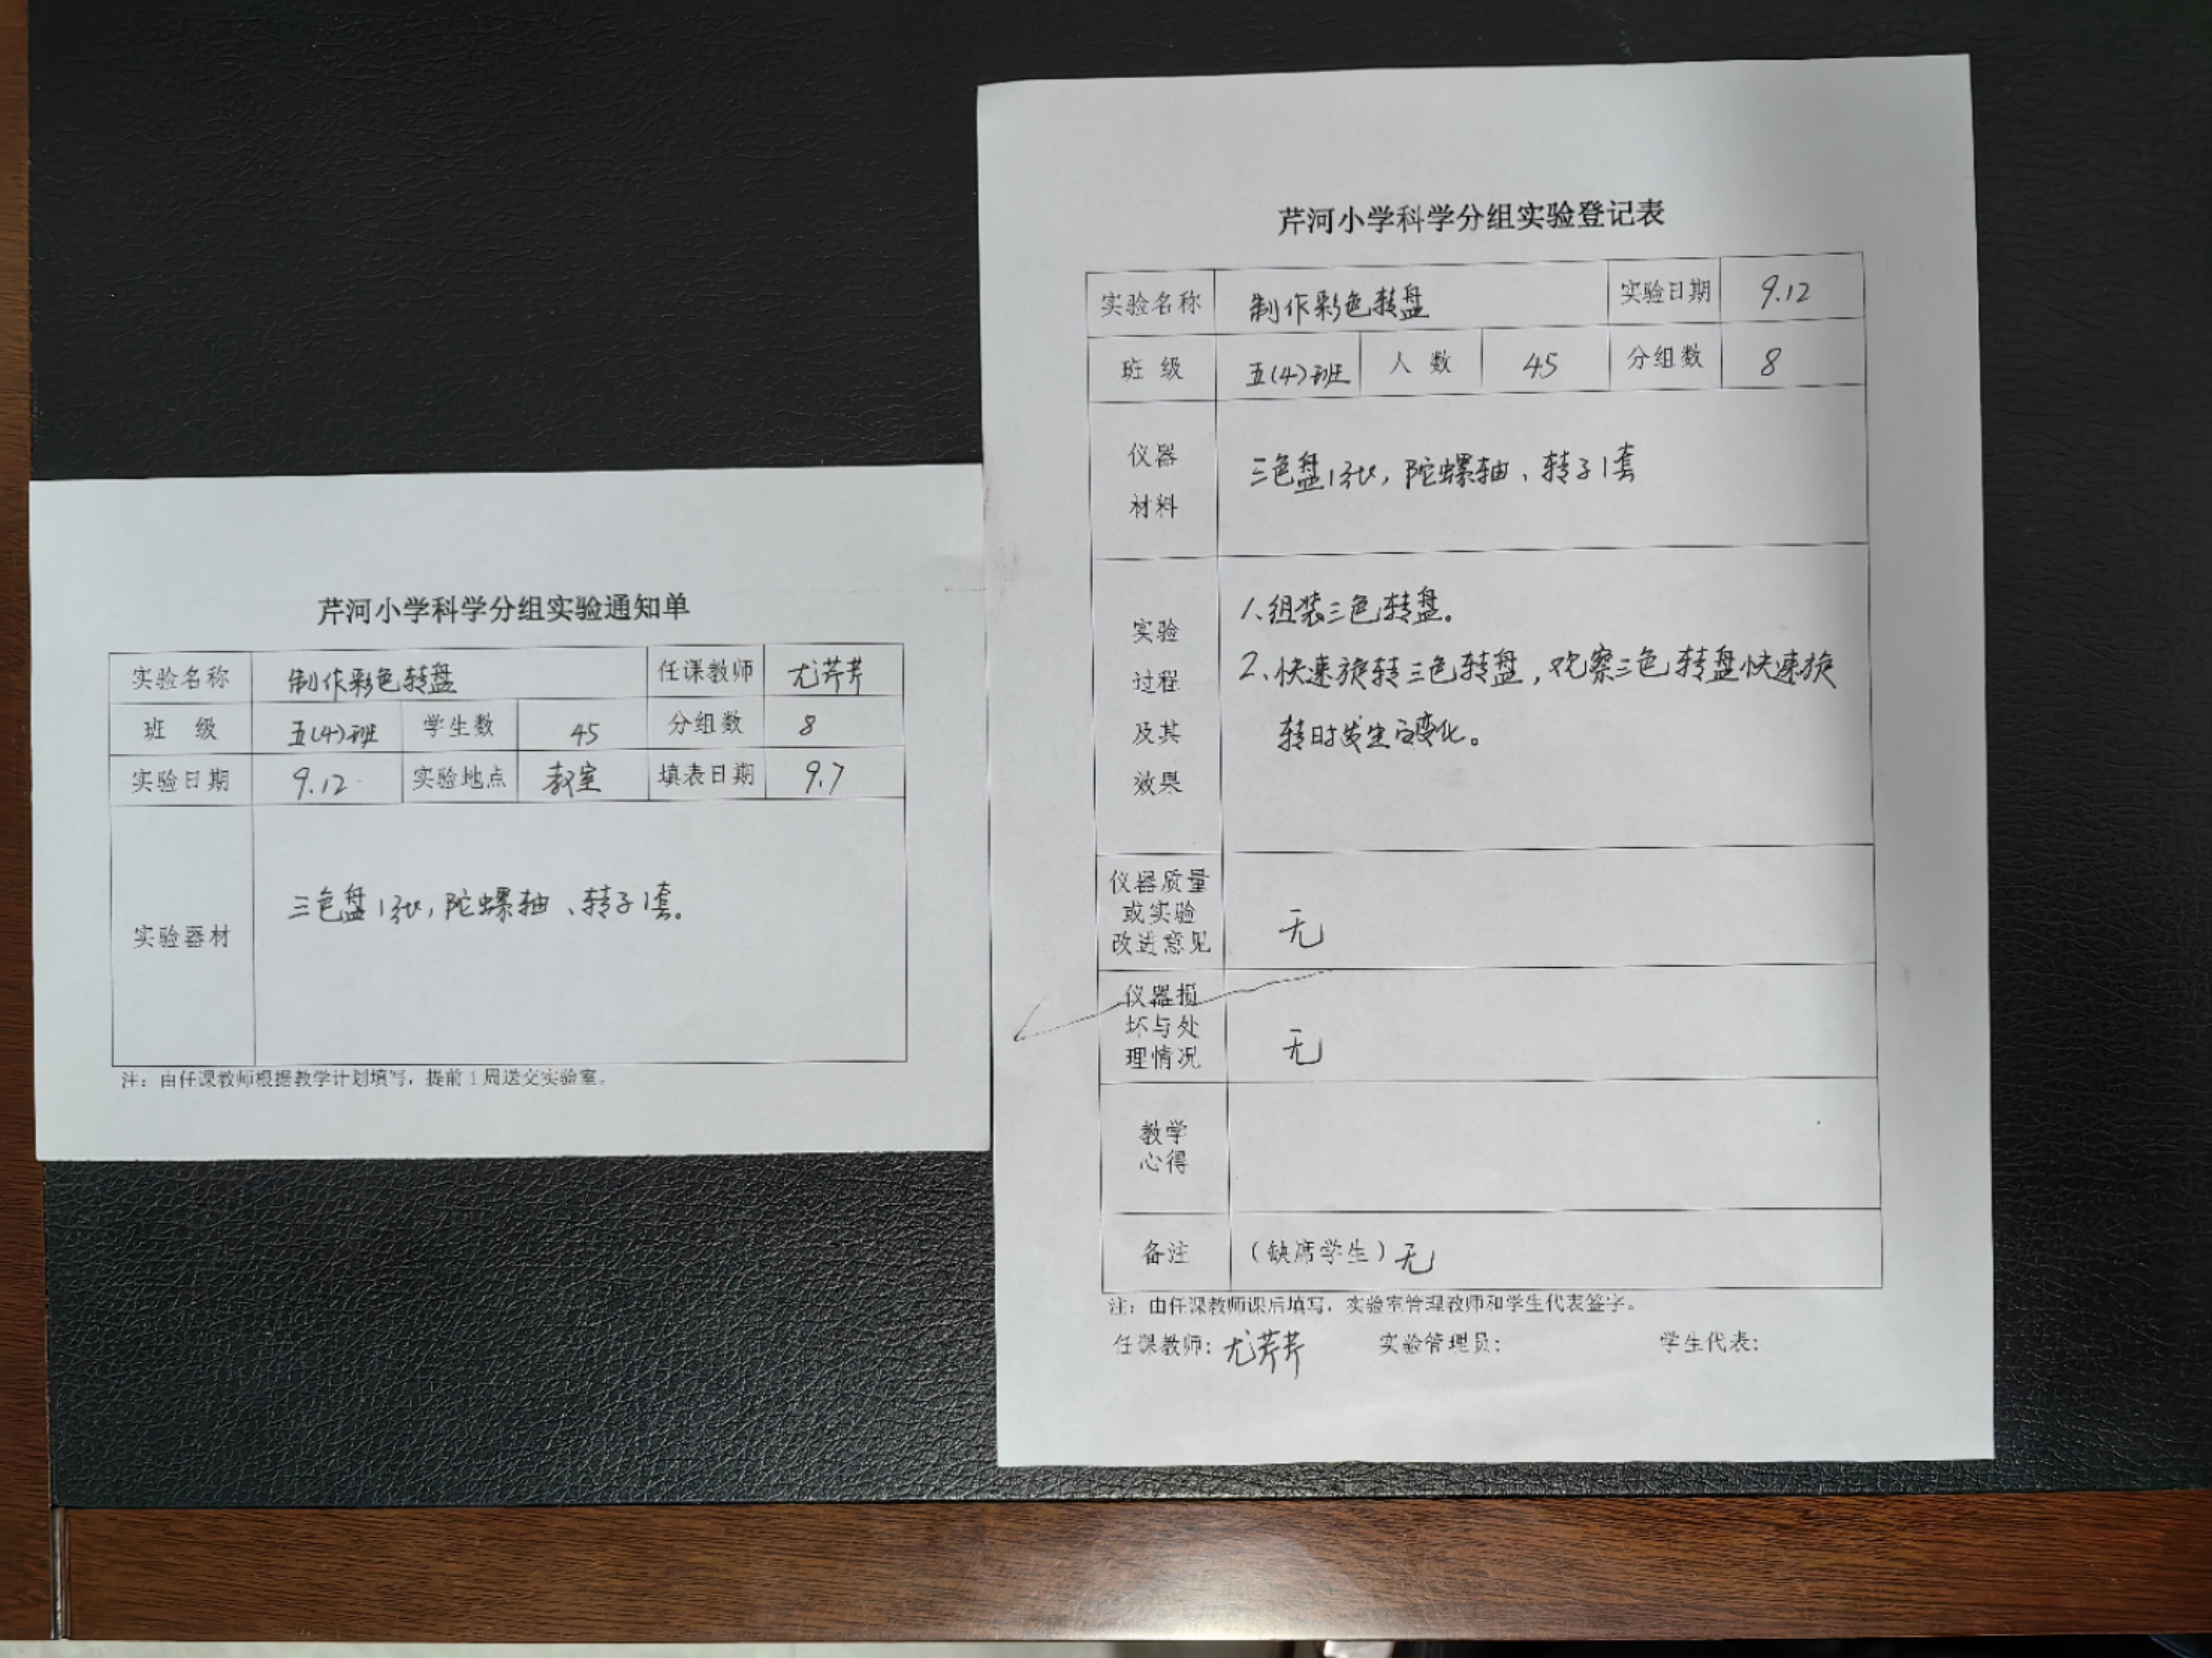 芹河小学科学分组实验通知单
实验名称 制作彩色转盘 任课教师 尤芹芹
班 级 五(4)班 学生数 45 分组数 8
实验日期 9.12 实验地点 教室 填表日期 9.7
实验器材 三色盘1张,陀螺轴、转子1套。
注：由任课教师根据教学计划填写，提前1周送交实验室。
芹河小学科学分组实验登记表
实验名称 制作彩色转盘 实验日期 9.12
班 级 五(4)班 人 数 45 分组数 8
仪器
材料
三色盘1张,陀螺轴、转子1套
实验
过程
及其
效果
1.组装三色转盘。
2、快速旋转三色转盘,观察三色转盘快速旋
转时发生的变化。
仪器质量
或实验
改进意见
无
仪器损
坏与处
理情况
无
教学
心得
备注 (缺席学生)无
注：由任课教师课后填写，实验室管理教师和学生代表签字。
任课教师：尤芹芹 实验管理员： 学生代表：